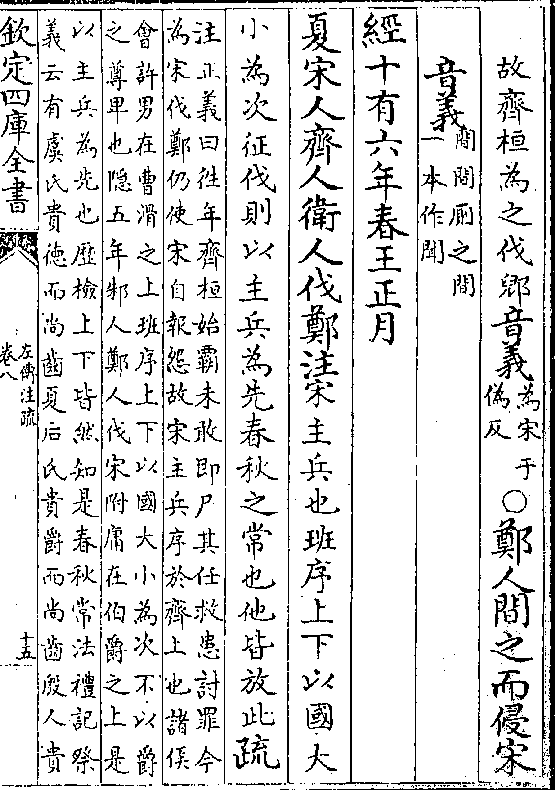 故齊桓為之伐郳音義為宋于
偽反○鄭人間之而侵宋
音義間間厠之間
一本作聞
經十有六年春王正月
夏宋人齊人衛人伐鄭注宋主兵也班序上下以國大
小為次征伐則以主兵為先春秋之常也他皆放此疏
注正義曰往年齊桓始霸未敢即尸其任救患討罪今
為宋伐鄭仍使宋自報怨故宋主兵序於齊上也諸侯
會許男在曹滑之上班序上下以國大小為次不以爵
之尊卑也隐五年邾人鄭人伐宋附庸在伯爵之上是
以主兵為先也歴檢上下皆然知是春秋常法禮記祭
義云有虞氏貴德而尚齒夏后氏貴爵而尚齒殷人貴
欽定四庫全書
左傳注疏
卷八
十五